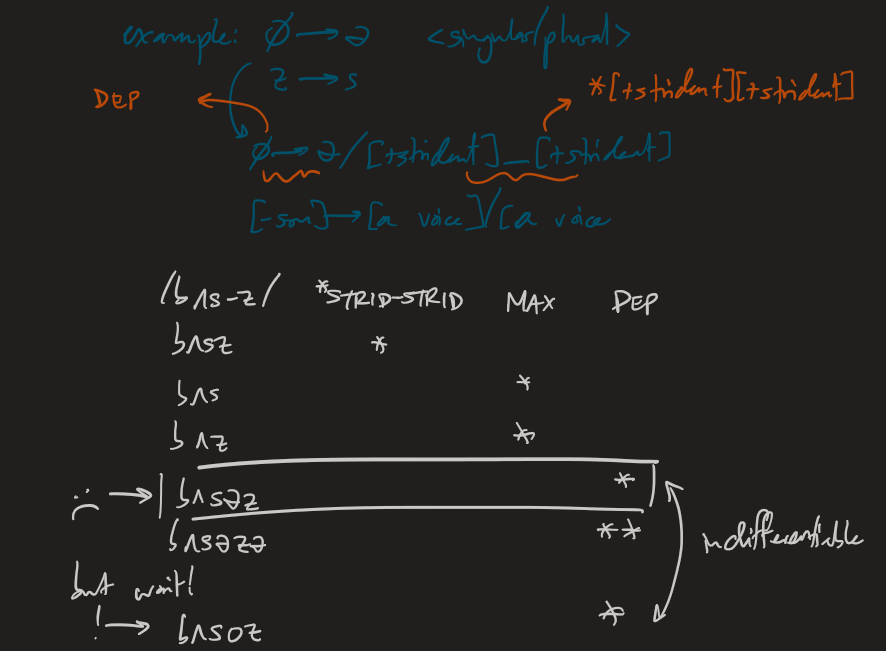 example: ∅→ə <singular/plural>
z→s
DEP
*[+strident][+strident]
∅→ə/[+strident]__[+strident]
[-son]→[α voice]/[α voice
/bʌs-z/ *STRID-STRID MAX DEP
bʌsz *
bʌs *
bʌz *
:( → bʌsəz *
bʌsəzə **
indifferentiable
but wait!
! → bʌsoz *